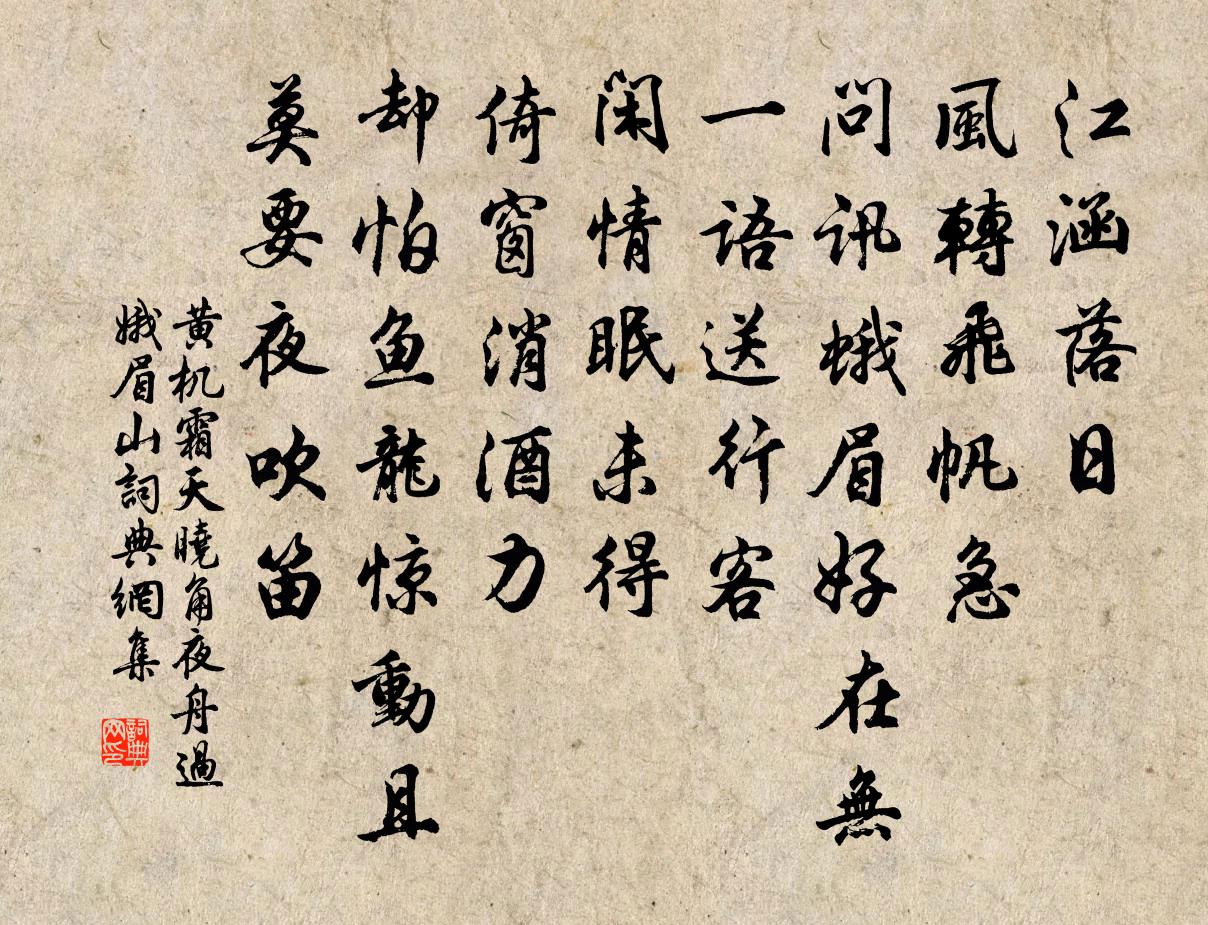 江涵落日
風轉飛帆急
問訊蛾眉好在無
一語送行客
闲情眠未得
倚窗消酒力
却怕鱼龍惊動且
莫要夜吹笛
黄机霜天曉角夜舟過
娥眉山詞典網集
詞典
网印